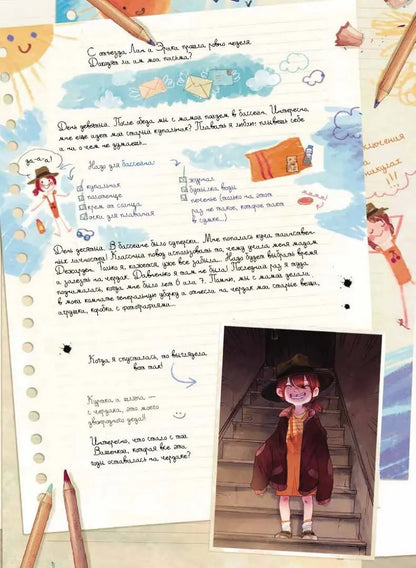 С отъезда Лин и Эрики прошла ровно неделя.
Доходят ли им мои письма?
День девятый. После обеда мы с мамой пойдем в бассейн. Интересно,
мне еще идет мой старый купальник? Плавать я люблю: плывешь себе
и ни о чем не думаешь...
да-а-а!
Надо для бассейна:
купальник
полотенце
крем от солнца
очки для плавания
журнал
бутылка воды
печенье (только на этот
раз не такое, которое тает
в сумке...)
мама!
День десятый. В бассейне было суперски. Мне попалась куча таинствен-
ных личностей! Классный повод использовать то, чему учила меня мадам
Дежарден. Только я, кажется, уже все забыла... Надо будет выбрать время
и залезть на чердак. Давненько я там не была! Последний раз я туда
поднималась, когда мне было лет 6 или 7. Помню, мы с мамой делали
в моей комнате генеральную уборку и отнесли на чердак мои старые вещи,
игрушки, коробки с фотографиями...
Когда я спустилась, то выглядела
вот так!
Куртка и шляпа —
с чердака, это моего
двоюродного деда!
Интересно, что стало с той
Вишенкой, которая все эти
годы оставалась на чердаке?
ключения
каникулах
!!!